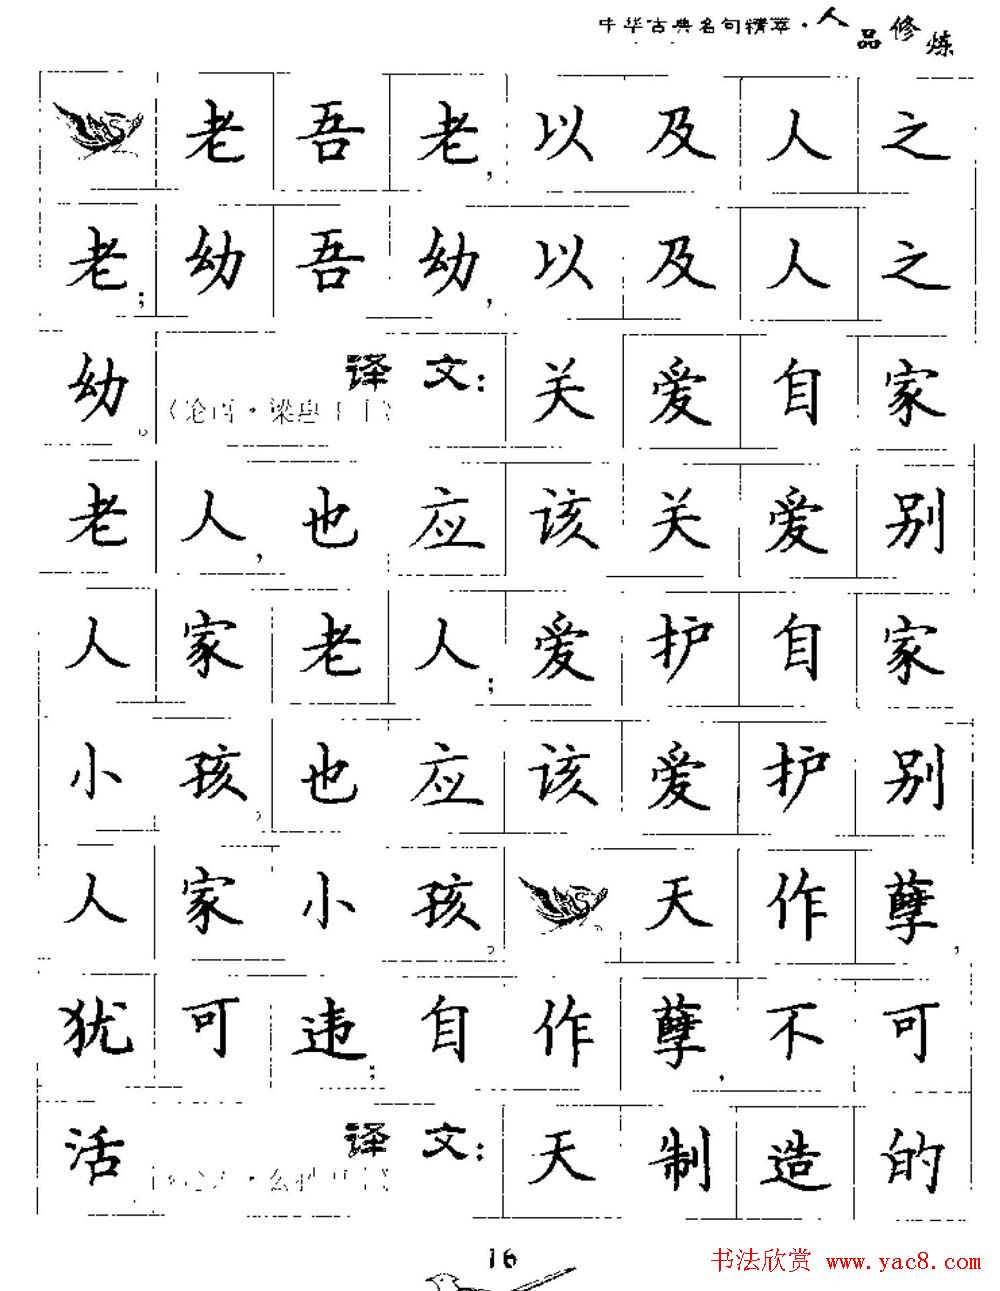 中华古典名句精萃·人品修炼
老吾老,以及人之
老;幼吾幼,以及人之
幼。译文:关爱自家
老人,也应该关爱别
人家老人;爱护自家
小孩,也应该爱护别
人家小孩。天作孽,
犹可违;自作孽,不可
活 译文:天制造的
16
书法欣赏 www.yac8.com